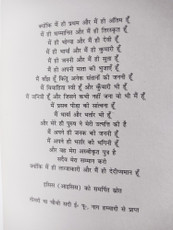 क्योंकि मैं ही प्रथम और मैं ही अंतिम हूँ
मैं ही सम्मानित और मैं ही तिरस्कृत हूँ
मैं ही भोग्या और मैं ही देवी हूँ
मैं ही भार्या और मैं ही कुमारी हूँ
मैं ही जननी और मैं ही सुता हूँ
मैं ही अपनी माता की भुजाएँ हूँ
मैं बाँझ हूँ किंतु अनेक संतानों की जननी हूँ
मैं विवाहिता स्त्री हूँ और कुँवारी भी हूँ
मैं जनित्री हूँ और जिसने कभी नहीं जना वो भी मैं हूँ
मैं प्रसव पीड़ा की सांत्वना हूँ
मैं भार्या और भर्तार भी हूँ
और मेरे ही पुरुष ने मेरी उत्पत्ति की है
मैं अपने ही जनक की जननी हूँ
मैं अपने ही भर्तार की भगिनी हूँ
और वह मेरा अस्वीकृत पुत्र है
सदैव मेरा सम्मान करो
क्योंकि मैं ही लज्जाकारी और मैं ही देदीप्यमान हूँ
इसिस (आइसिस) को समर्पित स्रोत
तीसरी या चौथी सदी ई. पू., नाग हम्मादी से प्राप्त